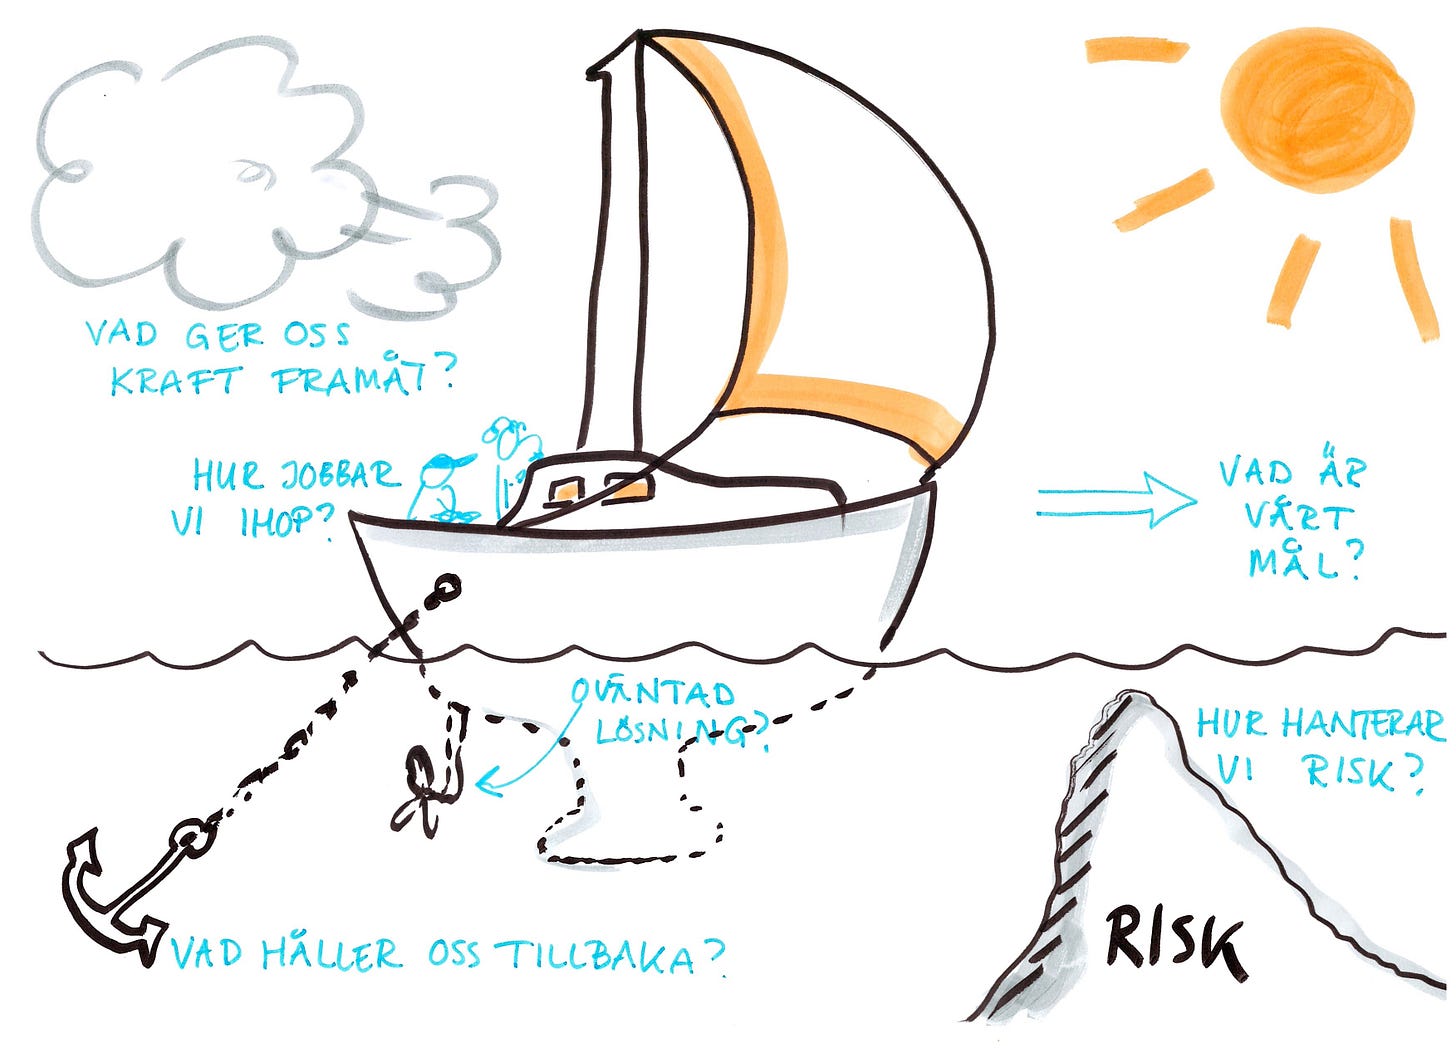 VAD GER OSS
KRAFT FRAMÅT?
HUR JOBBAR
VI IHOP?
VAD ÄR
VÅRT
MÅL?
OVÄNTAD
LÖSNING?
HUR HANTERAR
VI RISK?
RISK
VAD HÅLLER OSS TILLBAKA?